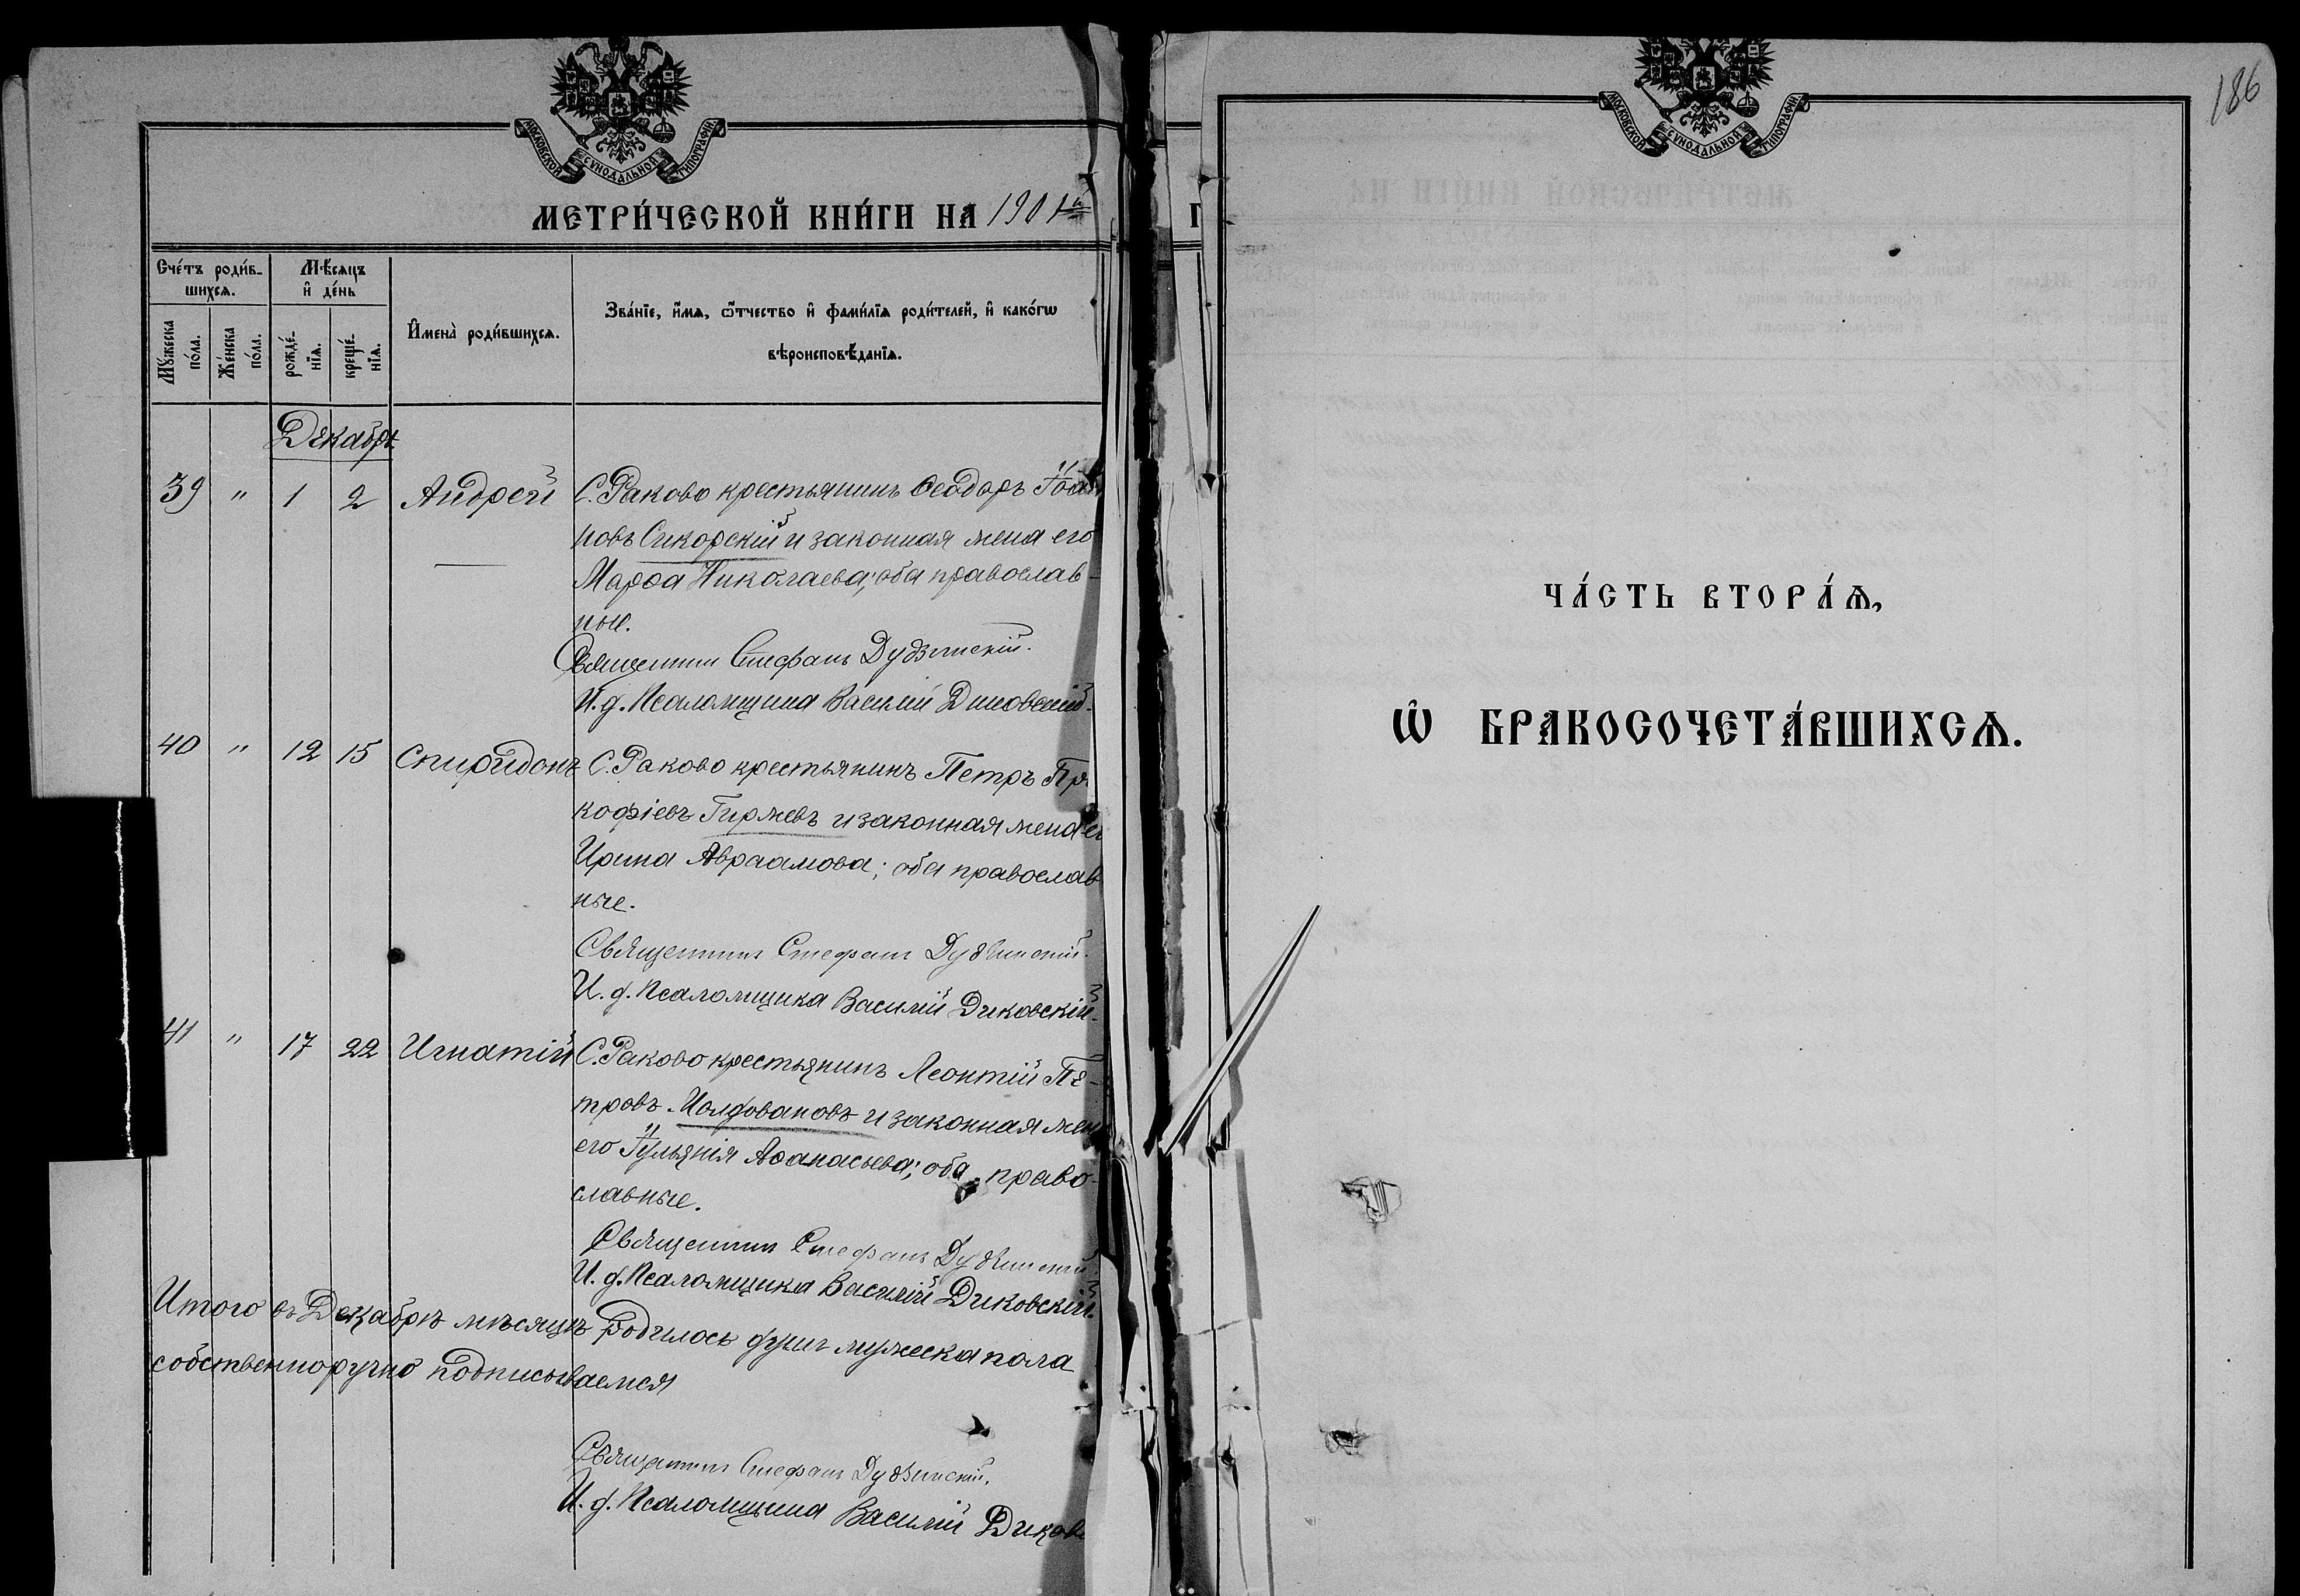 МОСКОВСКОЙ СѴНОДАЛЬНОЙ ТИПОГРАФІИ
МЕТРИ́ЧЕСКОЙ КНИ́ГИ НА 1901й
Сче́тъ роди́вшихсѧ.
Мѣ́сяцъ и҆ де́нь
Мꙋ́жеска по́ла.
Же́нска по́ла.
рожде́нїѧ.
креще́нїѧ.
И҆мена̀ роди́вшихсѧ.
Зва́нїе, и҆́мѧ, ѻ҆́тчество и҆ фами́лїѧ роди́телей, и҆ како́гѡ
вѣроисповѣ́данїѧ.
Декабрь
39 " 1 2 Андрей С. Раково крестьянинъ Ѳеодоръ Іоан
новъ Сикорскій и законная жена его
Марѳа Николаева; оба православ-
ные.
Священникъ Стефанъ Дудзинскій.
И. д. Псаломщика Василій Диковскій.
40 " 12 15 Спиридонъ С. Раково крестьянинъ Петръ Про
кофіевъ Гиржевъ и законная жена ег
Ирина Авраамова; оба православ
ные.
Священникъ Стефанъ Дудзинскій.
И. д. Псаломщика Василій Диковскій.
41 " 17 22 Игнатій С. Раково крестьянинъ Леонтій Пе-
тровъ Молдовановъ и законная жен
его Іульянія Аѳанасьева; оба право-
славные.
Священникъ Стефанъ Дудзинскій.
И. д. Псаломщика Василій Диковскій.
Итого въ Декабрѣ мѣсяцѣ родилось душъ мужеска пола
собственноручно подписываемся
Священникъ Стефанъ Дудзинскій.
И. д. Псаломщика Василій Диков
186
МОСКОВСКОЙ СѴНОДАЛЬНОЙ ТИПОГРАФІИ
ЧА́СТЬ ВТОРА́Ѧ,
Ѡ҆ БРАКОСОЧЕТА́ВШИХСѦ.